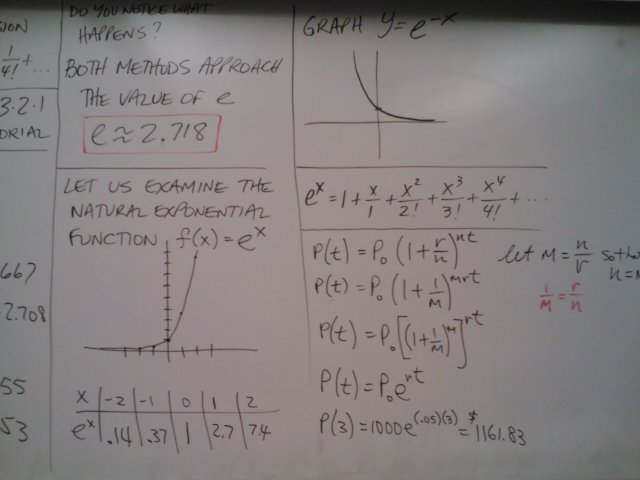 SION
1/4! + ...
3·2·1
ORIAL
667
2.708
55
53
DO YOU NOTICE WHAT
HAPPENS?
BOTH METHODS APPROACH
THE VALUE OF e
e ≈ 2.718
LET US EXAMINE THE
NATURAL EXPONENTIAL
FUNCTION f(x) = e^x
x | -2 | -1 | 0 | 1 | 2
e^x | .14 | .37 | 1 | 2.7 | 7.4
GRAPH y = e^-x
e^x = 1 + x/1 + x^2/2! + x^3/3! + x^4/4! + ...
P(t) = P₀ (1 + r/n)^nt let M = n/r so tha
n = M
P(t) = P₀ (1 + 1/M)^Mrt 1/M = r/n
P(t) = P₀ [(1 + 1/M)^M]^rt
P(t) = P₀e^rt
P(3) = 1000e^(.05)(3) = $1161.83